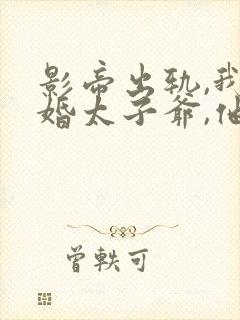 影帝出轨,我
婚太子爷,他
曾轶可